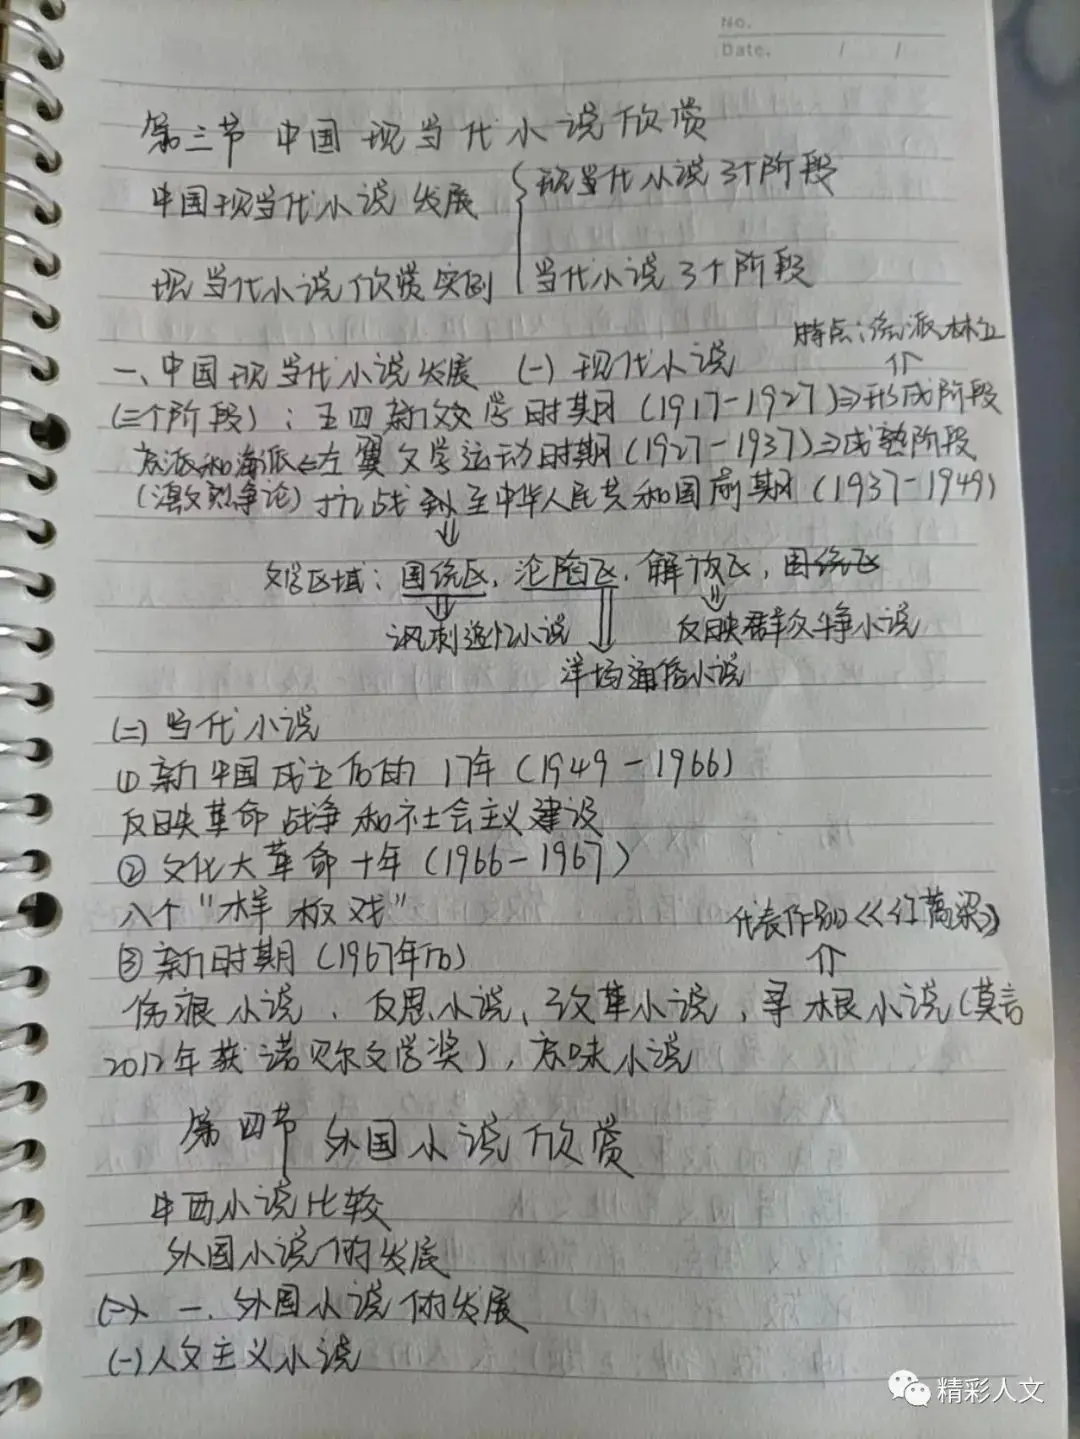 No.
Date. / /
第三节 中国现当代小说欣赏
中国现当代小说发展 { 现当代小说3个阶段
现当代小说欣赏实例 当代小说3个阶段
特点:流派林立
一、中国现当代小说发展 (一) 现代小说 ⇑
(三个阶段):五四新文学时期(1917-1927)⇒形成阶段
京派和海派⇐左翼文学运动时期(1927-1937)⇒成熟阶段
(激烈争论)抗战到至中华人民共和国前期(1937-1949)
⇓
文学区域:国统区,沦陷区,解放区,国统区
讽刺追忆小说 反映群众斗争小说
洋场通俗小说
(二)当代小说
①新中国成立后的17年(1949-1966)
反映革命战争和社会主义建设
②文化大革命十年(1966-1967)
八个"样板戏" 代表作品《《红高粱》
③新时期(1967年后) ⇑
伤痕小说、反思小说、改革小说,寻根小说(莫言
2012年获诺贝尔文学奖),京味小说
第四节 外国小说欣赏
中西小说比较
外国小说的发展
(一) 一.外国小说的发展
(一)人文主义小说
精彩人文